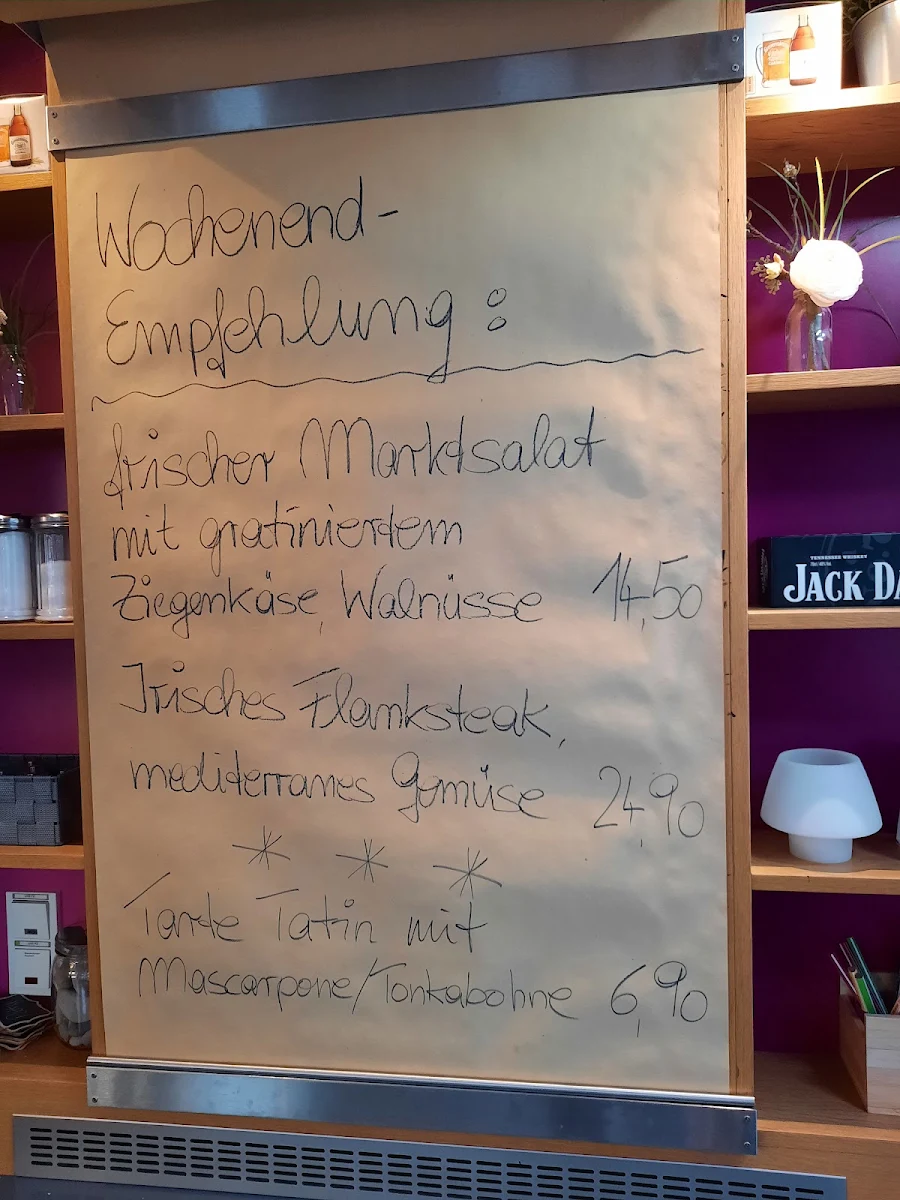 Wochenend-
Empfehlung:
frischer Marktsalat
mit gratiniertem
Ziegenkäse, Walnüsse 14,50
Irisches Flanksteak,
mediterranes Gemüse 24,90
* * *
Tarte Tatin mit
Mascarpone/Tonkabohne 6,90
TENNESSEE WHISKEY
JACK DA